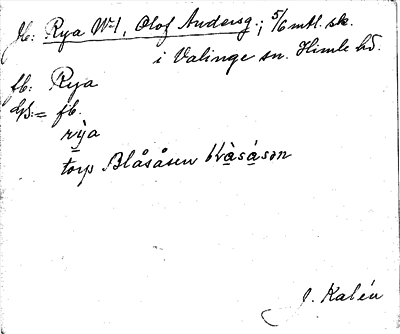 Jb: Rya Nº1, Olof Andersg.; 5/6 mtl. sk.
i Valinge sn. Himle hd.
fb: Rya
dß:= fb.
rỳa
torp Blåsåsen blàsåsən
J. Kalén